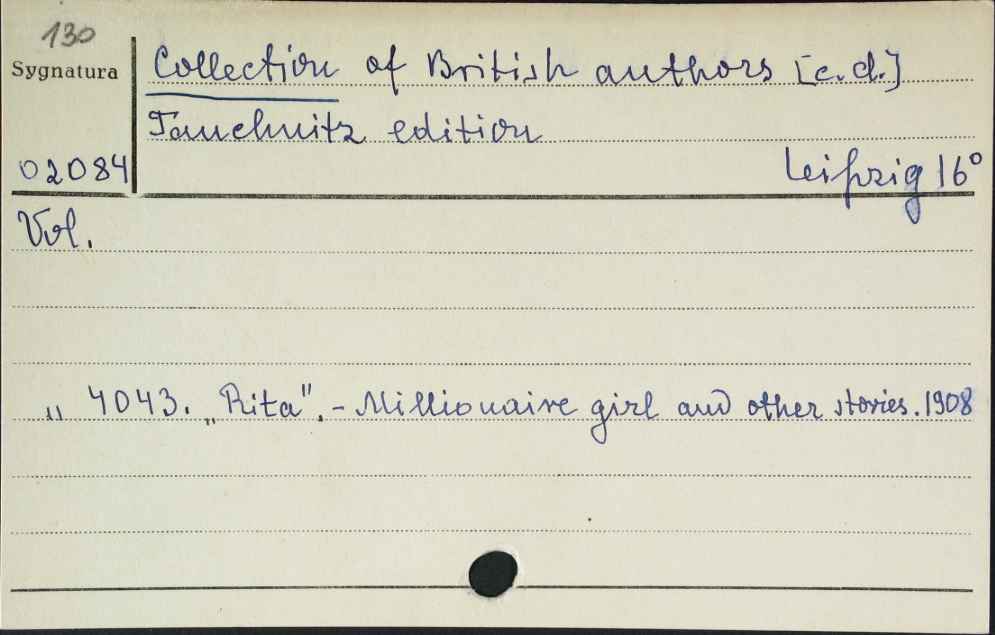 130
Sygnatura
Collection of British authors [c.d.]
Tauchnitz edition
02084
Leipzig 16°
Vol.
„ 4043. „Rita". - Millionaire girl and other stories. 1908